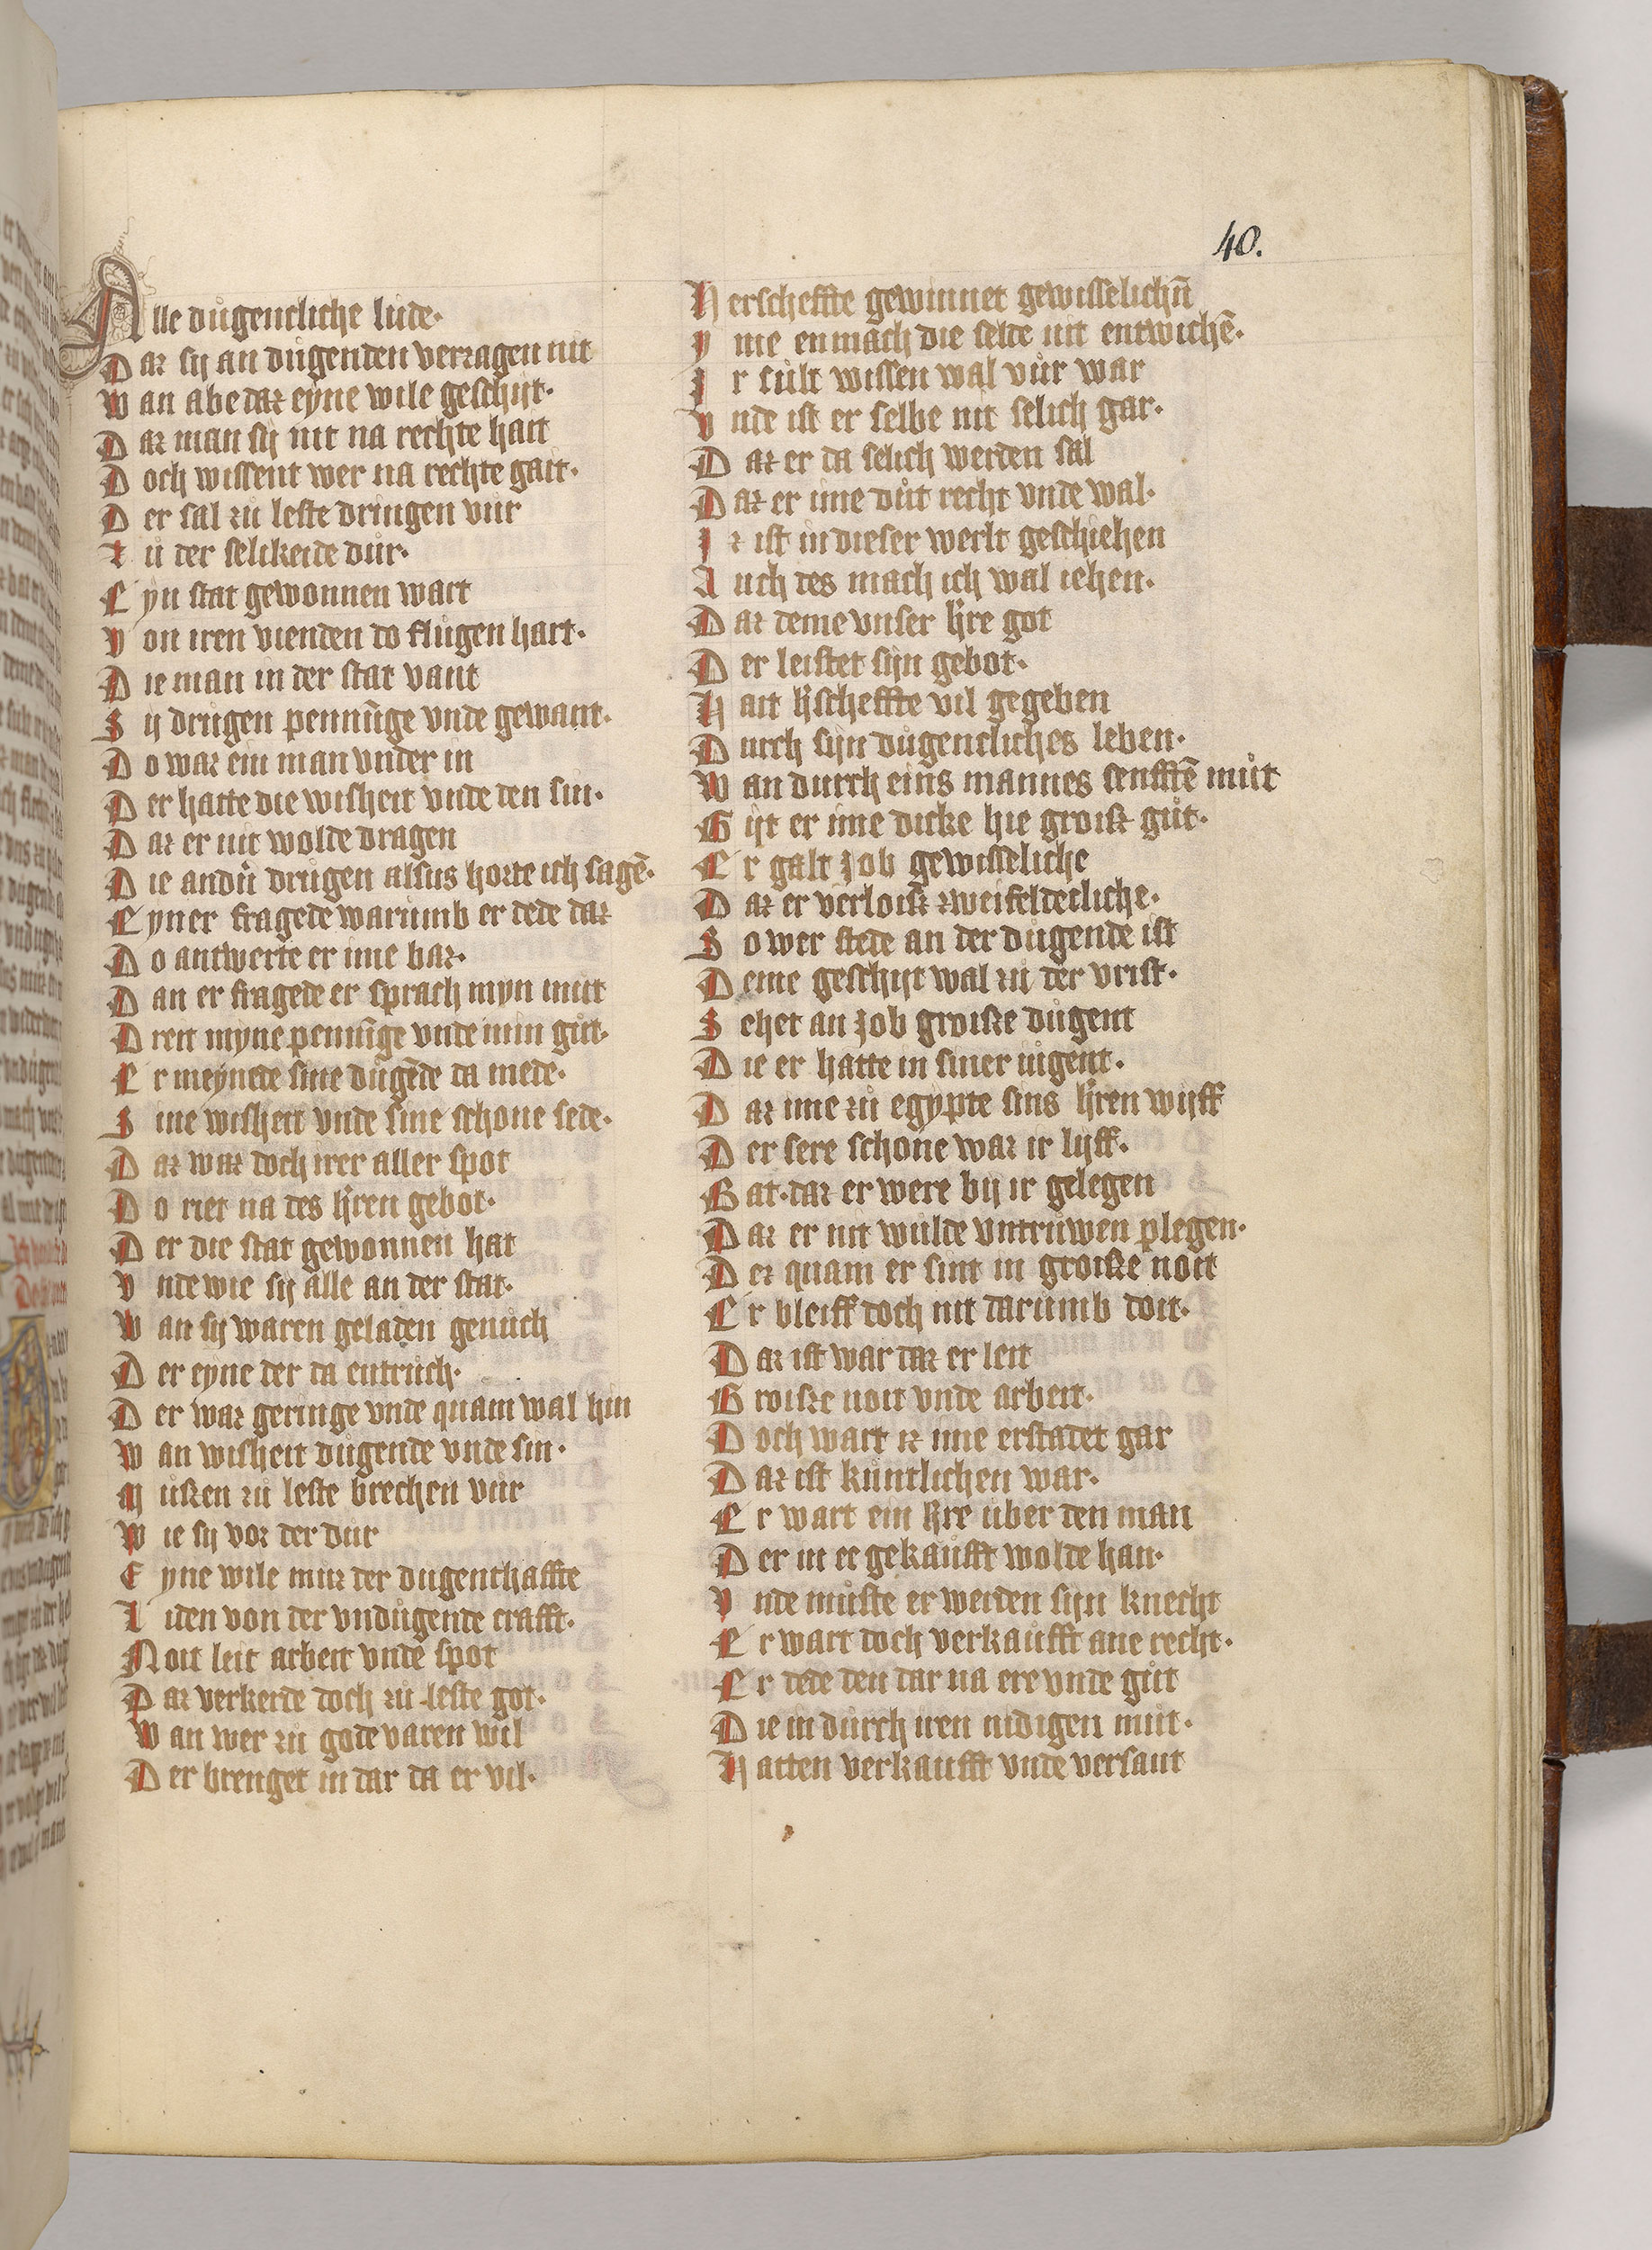 40.
Alle důgentliche lude·
Daz sij an důgenden verzagen nit
Wan abe daz eyne wile geschijt·
Daz man sij nit na rechte hait
Doch wissent wer na rechte gait·
Der sal zů leste dringen vůr
Zů der selikeide důr·
Eyn stat gewonnen wart
Von iren vienden do flůgen hart·
Die man in der stat vant
Sij drůgen pennīge vnde gewant·
Do waz ein man vnder in
Der hatte die wisheit vnde den sin·
Daz er nit wolde dragen
Die andn̄ drůgen alsus horte ich sagē·
Eyner fragede warumb er dede daz
Do antwerte er ime baz·
Dan er fragede er sprach myn můt
Dreit myne pennīge vnde min gůt·
Er meynede sine důgēde da mede·
Sine wisheit vnde sine schone sede·
Daz waz doch irer aller spot
Do riet na des hr̄en gebot·
Der die stat gewonnen hat
Vnde wie sij alle an der stat·
Wan sij waren geladen genůch
Der eyne der da entrůch·
Der waz geringe vnde quam wal hin
Wan wisheit důgende vnde sin·
Můßen zů leste brechen vůr
Wie sij vor der důr
Eyne wile můz der dugenthaffte
Liden von der vndůgende crafft·
Noit leit arbeit vnde spot
Daz verkerde doch zů leste got·
Wan wer zů gode varen wil
Der brenget in dar da er vil·
Herscheffte gewinnet gewisselichn̄
Ime enmach die selde nit entwichē·
Ir sůlt wissen wal vůr war
Vnde ist er selbe nit selich gar·
Daz er da selich werden sal
Daz er ime důt recht vnde wal·
Iz ist in dieser werlt geschiehen
Auch des mach ich wal iehen·
Daz deme vnser hr̄e got
Der leistet sijn gebot·
Hait hr̄scheffte vil gegeben
Durch sijn důgentliches leben·
Wan durch eins mannes senfftē můt
Gijt er ime dicke hie groiß gůt·
Er galt Job gewisseliche
Daz er verloiß zweifeldecliche·
So wer stede an der důgende ist
Deme geschijt wal zů der vrist·
Sehet an Job groiße důgent
Die er hatte in siner iůgent·
Daz ime zů egypte sins hr̄en wijff
Der sere schone waz ir lijff·
Bat·daz er were bij ir gelegen
Daz er nit wůlde vntrůwen plegen·
Dez quam er sint in groiße noit
Er bleiff doch nit darůmb doit·
Daz ist war daz er leit
Groiße noit vnde arbeit·
Doch wart iz ime erstadet gar
Daz ist kůntlichen war·
Er wart ein hr̄re uber den man
Der in ee gekaufft wolde han·
Vnde můste er werden sijn knecht
Er wart doch verkaufft ane recht·
Er dede den dar na ere vnde gůt
Die in důrch iren nidigen můt·
Hatten verkaufft vnde versant